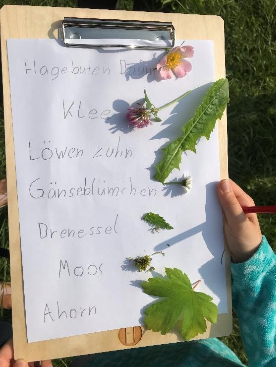 Hagebuten
Klee
Löwen zahn
Gänseblümchen
Drenessel
Moos
Ahorn